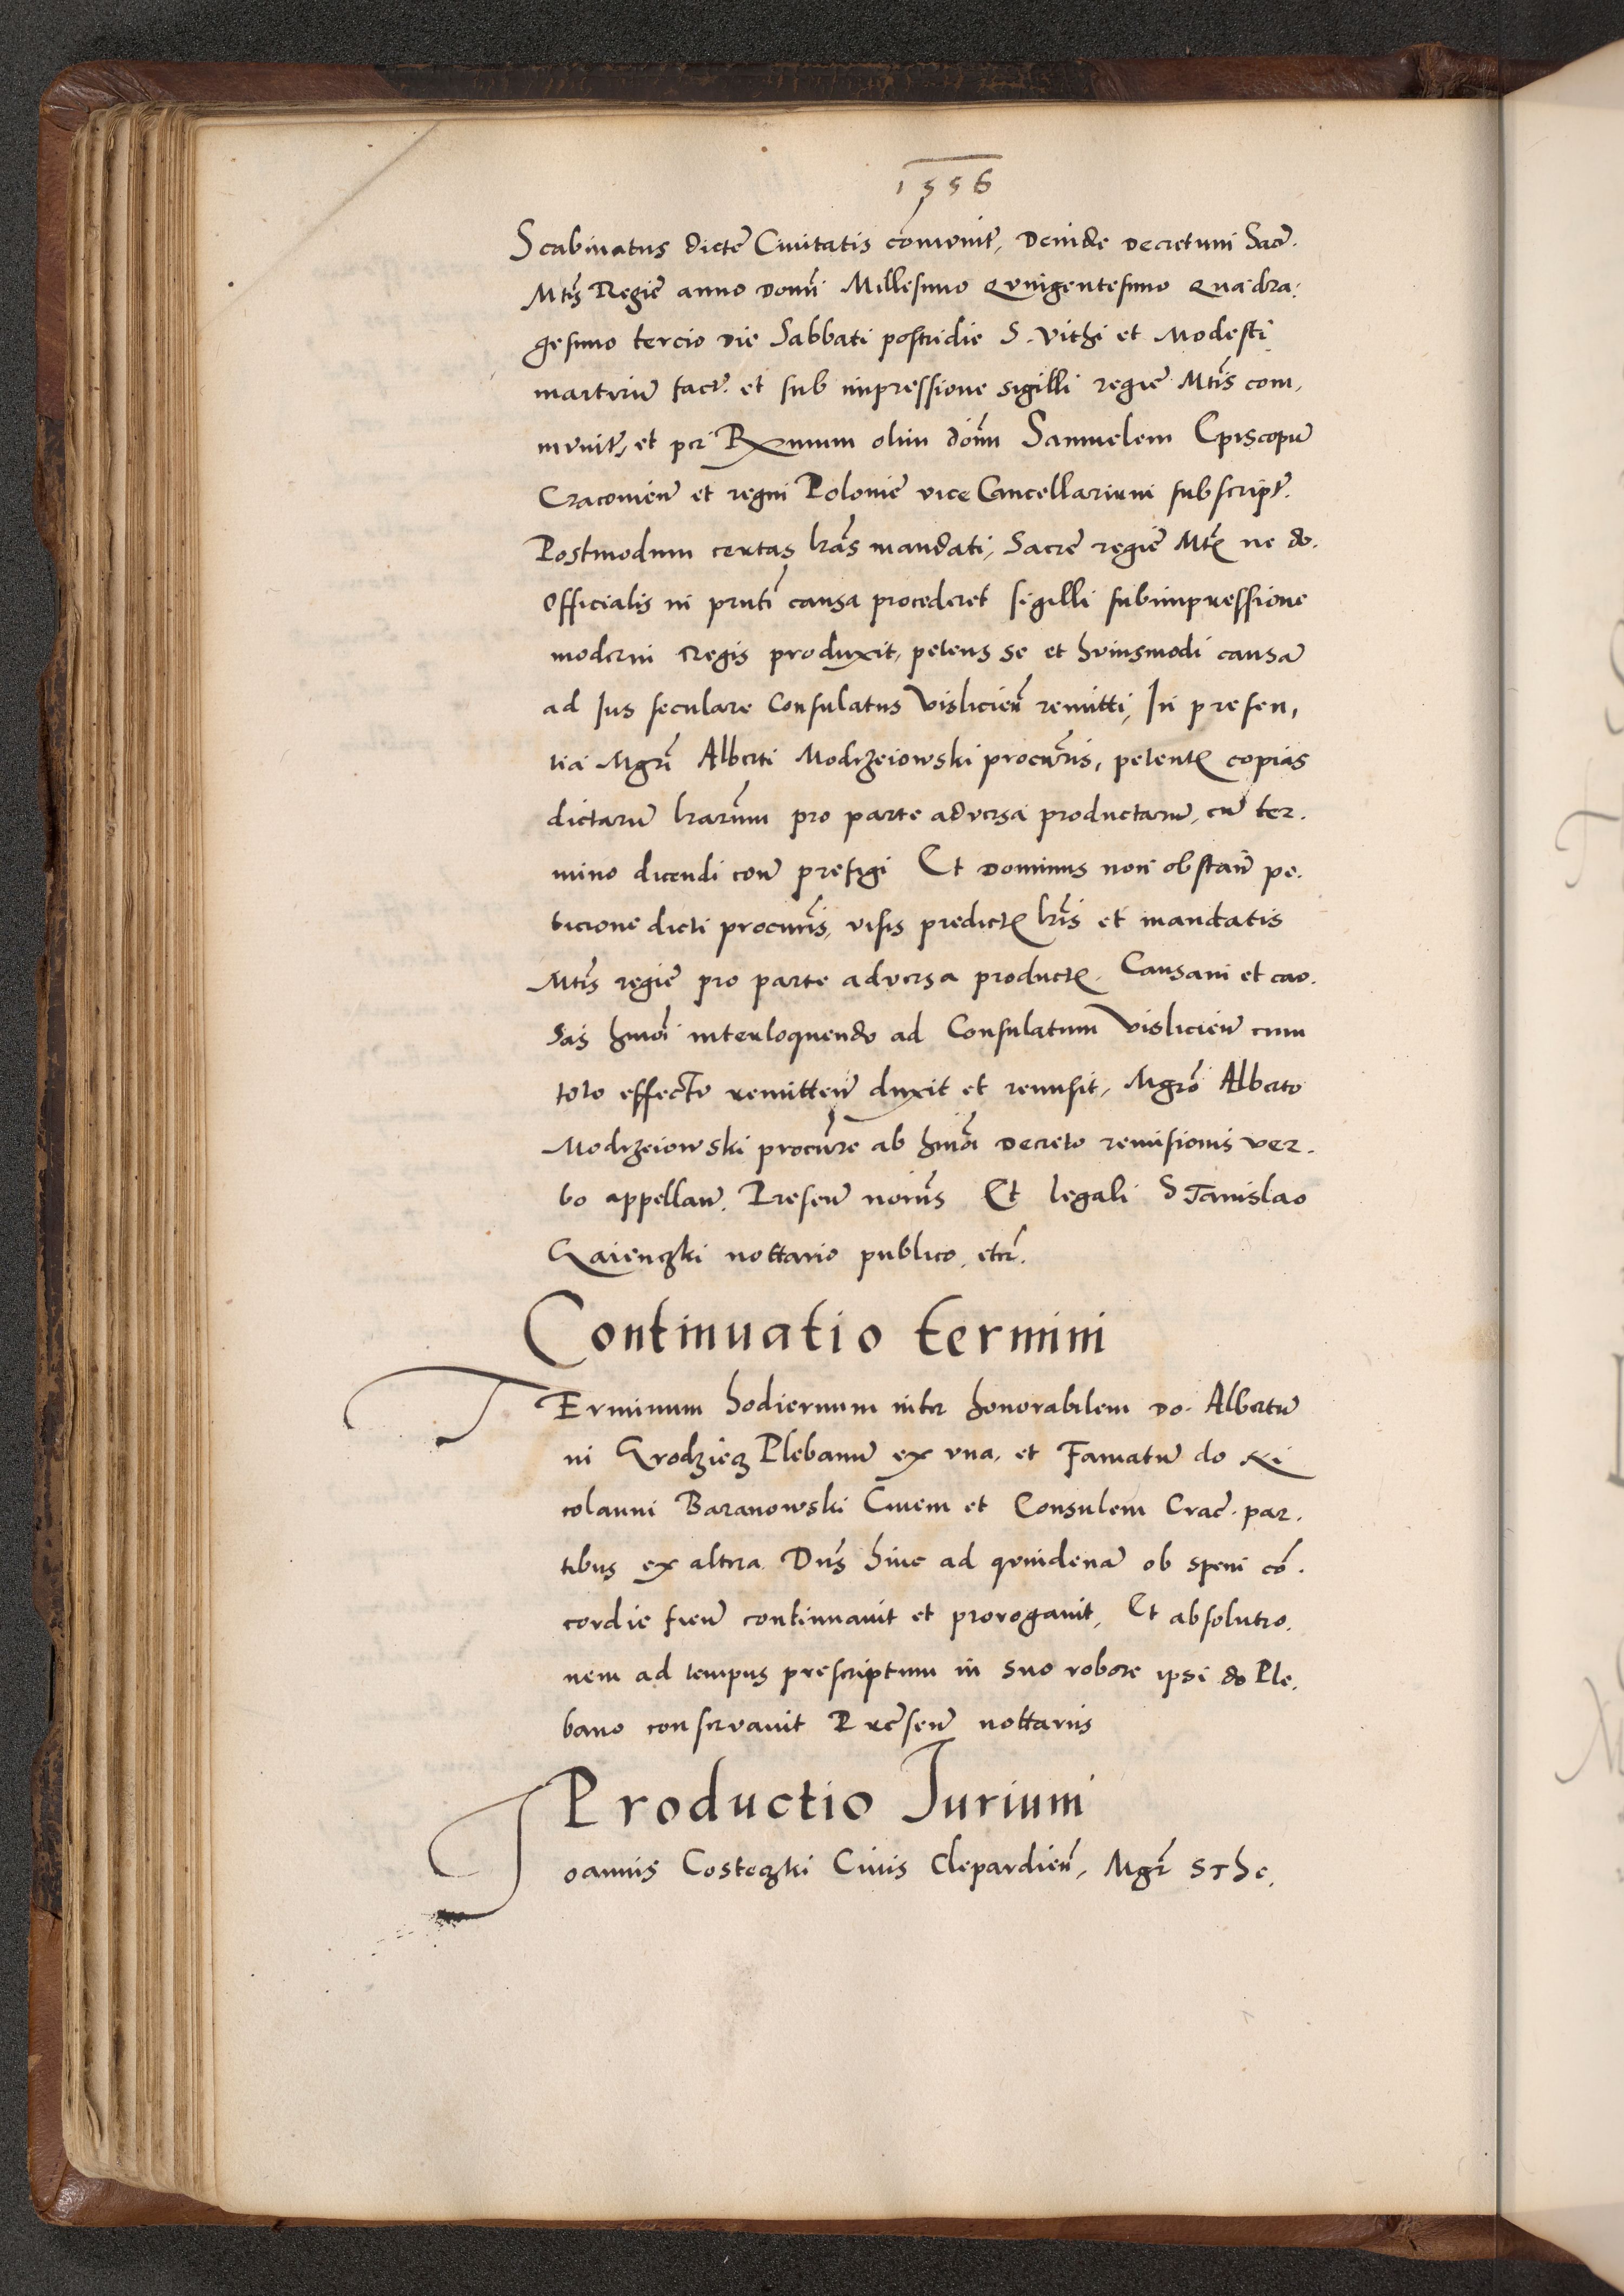 1556
Scabinatus dictẽ Ciuitatis conuenit, Deinde decretum Sacr̃.
Mtis̃ Regiẽ anno domĩ Millesimo Quingentesimo Quadra.
gesimo tercio die Sabbati postridie S. Vithi et Modesti
martirũ fact̃. et sub impressione sigilli regiẽ Mtis̃ com,
munit̃, et per Rxmum olim dom̃ Samuelem Episcopũ
Cracouien̄ et regni Poloniẽ vice Cancellarium subscript̃.
Postmodum certas lrãs mandati, Sacrẽ regiẽ Mt̃ꝭ ne do.
Officialis in pnti̇̃ causa procederet sigilli subimpressione
moderni Regis produxit, petens se et huiusmodi causã
ad Ius seculare Consulatus Vislicien̄ remitti, In presen,
tia Mgrĩ Alberti Modrzeiowski procurĩs, petentꝭ copias
dictarũ lrarũm pro parte aduersa productarũ, cũ ter.
mino dicendi con̄ prefigi Et Dominus non obstan̄ pe.
ticione dicti procurĩs, visis predictꝭ lrĩs et mandatis
Mtis̃ regiẽ pro parte aduersa productꝭ. Causam et cau.
sas hmõi interloquendo ad Consulatum Vislicien̄ cum
toto effectu remitten̄ duxit et remisit, Mgrõ Alberto
Modrzeiowski procurẽ ab hmõi decreto remisionis ver.
bo appellan̄. Presen̄ notrĩs Et legali Stanislao
Gaienczki nottario publico, etc̃.
Continuatio termini
TErminum hodiernum inter honorabilem do. Albertũ
in Grodziecz Plebanũ ex vna, et Famatũ do Ni
colaum Baranowski Ciuem et Consulem Crac̃. par.
tibus ex altera. Dnũs hinc ad quindenã ob spem cõ.
cordie fien̄ continuauit et prorogauit, Et absolutio.
nem ad tempus prescriptum in suo robore ipsi do Ple,
bano conseruauit Presen̄ nottariis
Productio Iurium
Ioannis Costeczki Ciuis Clepardien̄, Mgr̃ Sthe,